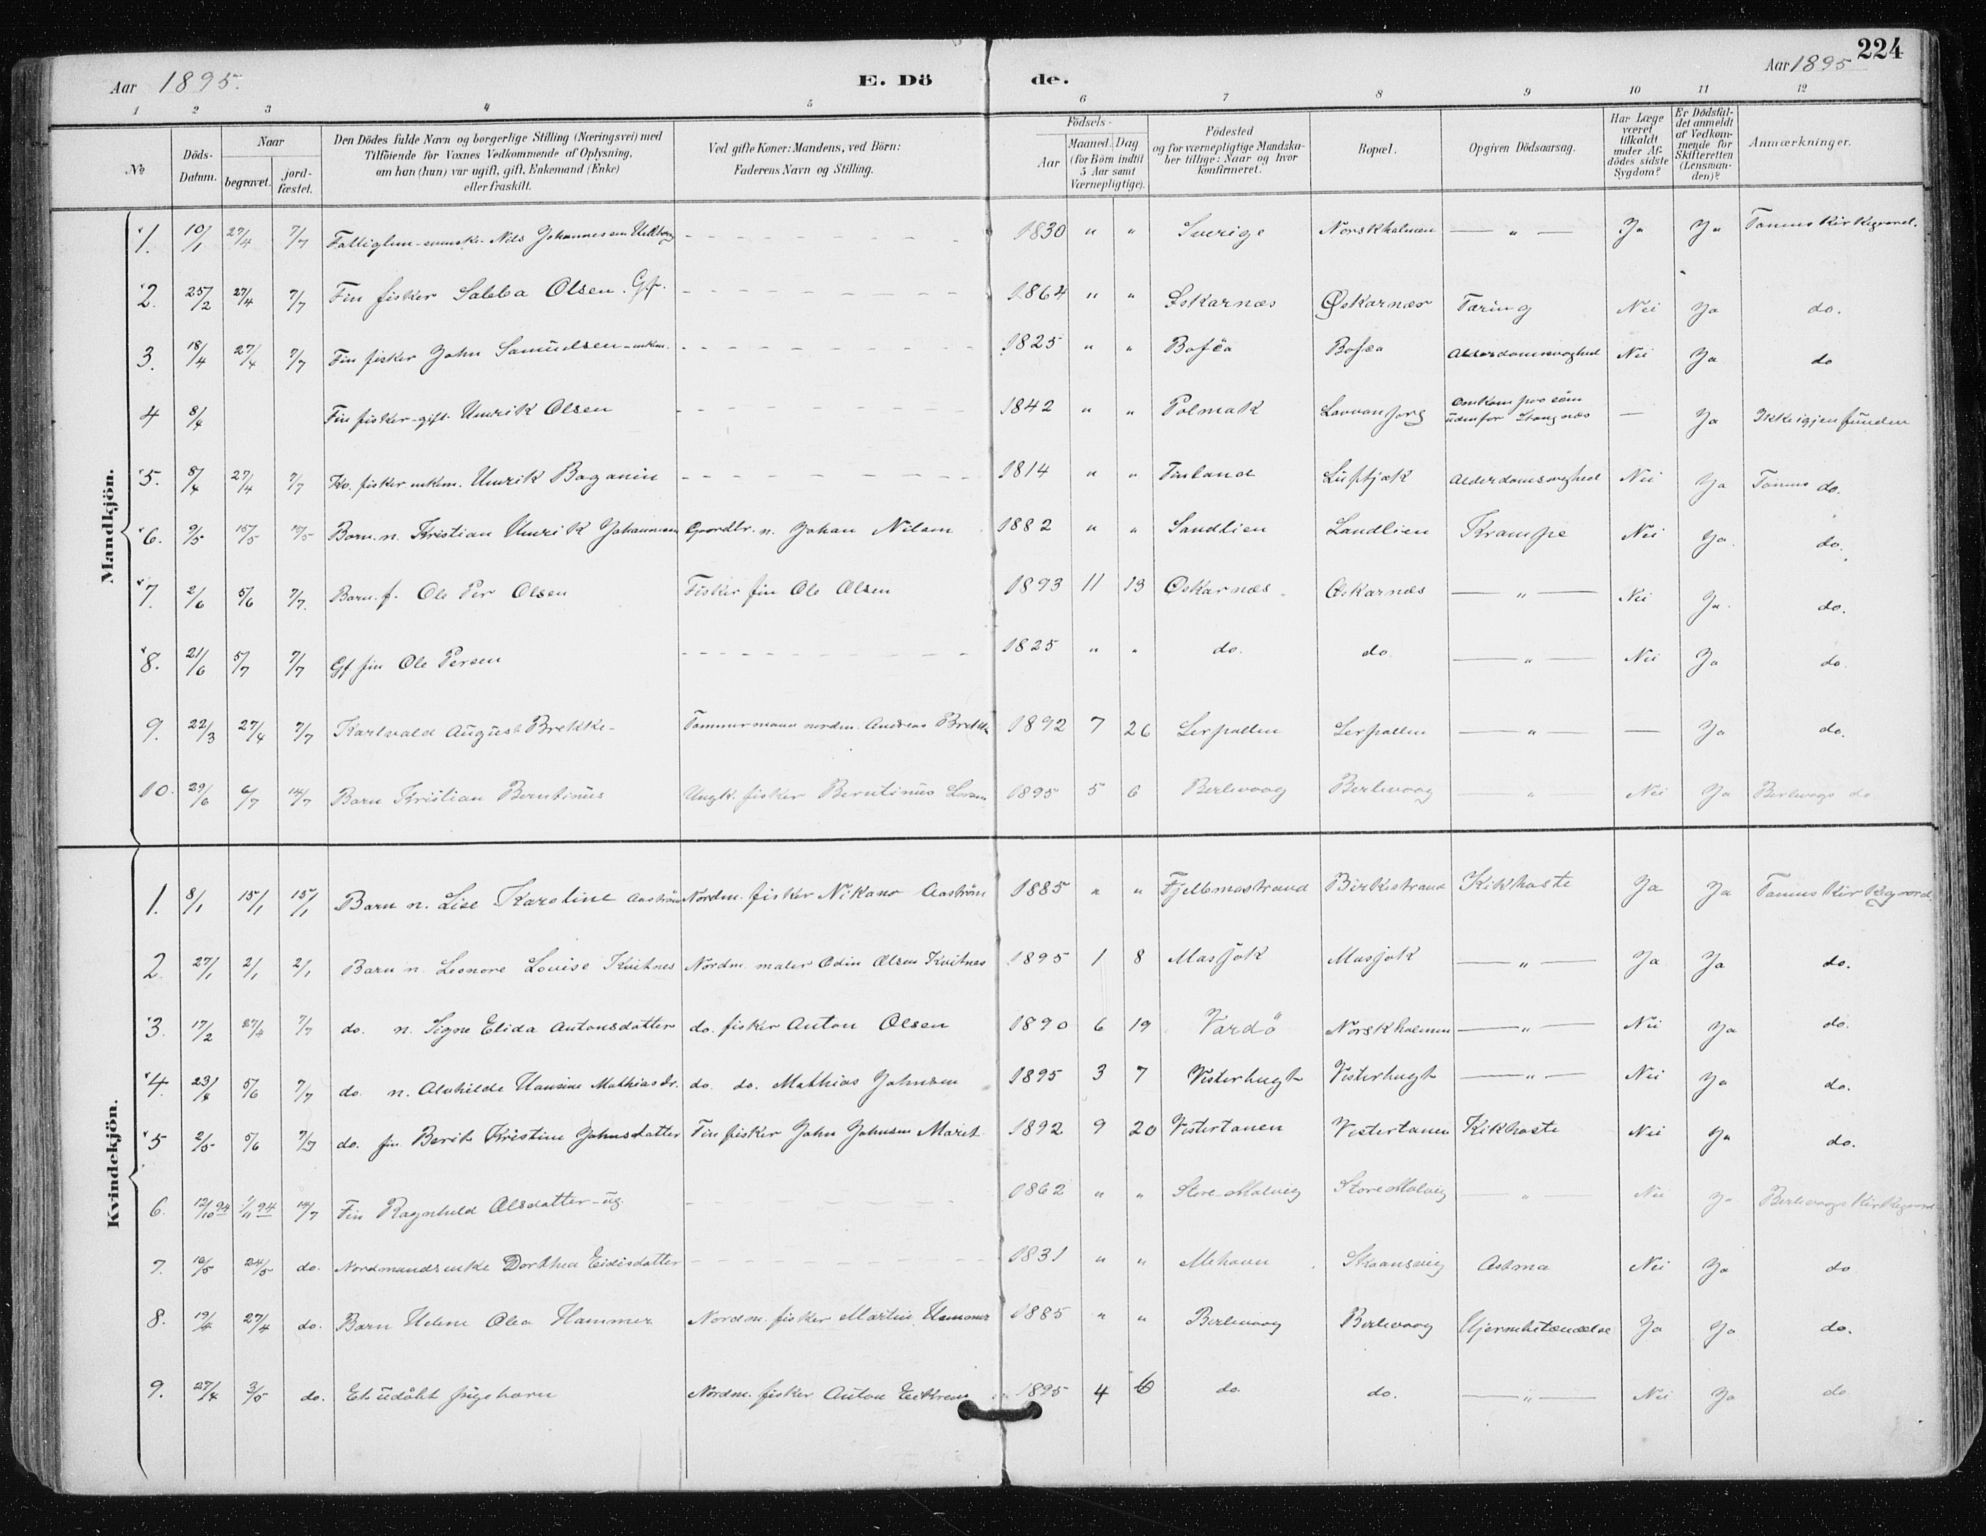 224
Aar 1895. E. Dö de. Aar 1895
1 2 3 4 5 6 7 8 9 10 11 12
No
Döds-Datum.
Naar
begravet.
jord-fæstet.
Den Dödes fulde Navn og borgerlige Stilling (Næringsvei) med
Tilföiende for Voxnes Vedkommende af Oplysning,
om han (hun) var ugift, gift, Enkemand (Enke)
eller fraskilt.
Ved gifte Koner: Mandens, ved Börn:
Faderens Navn og Stilling.
Födsels-
Aar
Maaned. Dag
(for Börn indtil
5 Aar samt
Værnepligtige).
Födested
og for værnepligtige Mandska-
ber tillige: Naar og hvor
konfirmeret.
Bopæl.
Opgiven Dödsaarsag.
Har Læge
været
tilkaldt
under Af-
dödes sidste
Sygdom?
Er Dödsfal-
det anmeldt
af Vedkom-
mende for
Skifteretten
(Lensman-
den)?
Anmærkninger.
Mandkjön.
1. 10/1 27/4 7/7 Nils Johannesen 1830 " " Sverige Norskholmen — " — Ja Ja Tanens Kirkegaard.
2. 25/2 27/4 7/7 Fin fisker Salba Olsen. Gf. 1864 " " Øskarnæs Øskarnæs Tæring Nei Ja do.
3. 18/4 27/4 7/7 Fin fisker John Samuelsen - enkm. 1825 " " Alderdomssvaghed Nei Ja do
4 8/4 Fin fisker - gift Henrik Olsen 1842 " " Polmak Omkom paa söen udenfor Stangnæs — Ja Ikke igjenfunden
5. 8/4 27/4 7/7 Kv. fisker enkem. Henrik Baganin 1814 " " Finland Alderdomssvaghed Nei Ja Tanens do.
6. 9/5 15/5 15/5 Barn. n. Kristian Henrik Johannesen Gaardbr. n. Johan Nilsen 1882 " " Sandlien Sandlien Krampe Nei Ja. do.
7. 2/6 5/6 7/7. Barn. f. Ole Per Olsen Fisker fin Ole Olsen 1893 11 13 Øskarnæs. Øskarnæs — " — Nei Ja. do.
8. 21/6 5/7 7/7 Gf fin Ole Persen 1825 " " do. do — " — Nei Ja do.
9. 22/3 27/4 7/7 Karlvald August Brekke - Tømmermann nordm. Andreas Brekke 1892 7 26 Lerpollen Lerpollen — " — — Ja do.
10. 29/6 6/7 14/7 Barn Kristian Berntinus Ungk. fisker Berntinus 1895 5 6 Berlevaag Berlevaag — " — Nei Ja Berlevags do
Kvindekjön.
1. 8/1 15/1 15/1 Barn n. Lise Karoline Aaström Nordm. fisker Nikano Aaström 1885 " " Birkestrand Kikhoste Ja Ja Tanens Kirkegaard
2. 27/1 2/1 2/1 Barn n. Leonore Lovise Kvitnes Nordm. maler Odin Olsen Kvitnes 1895 1 8 Masjok Masjok — " — Ja Ja do.
3. 17/2 27/4 7/7 do. n. Signe Elida Antonsdatter do. fisker Anton Olsen 1890 6 19 Vardö Norskholmen — " — Nei Ja do.
4. 23/4 5/6 7/7 do. n. Alvhilde Hansine Mathiasdr. do. do. Mathias Johnsen 1895 3 7 Vesterbugt Vesterbugt — " — Nei Ja do.
5 2/5 5/6 7/7 do. fin Berit Kristine Johnsdatter Fin fisker John Johnsen Maret 1892 9 20 Vestertanen Vestertanen Kikhoste Nei Ja do.
6. 12/10 94 1/11 94 14/7 Fin Ragnhild Olsdatter - ug. 1862 " " Store Molvig Store Molvig — " — Nei Ja Berlevaags Kirkegaard
7. 10/5 24/5 do. Nordmandsenke Dorthea Eidisdatter 1831 " " Mehavn Skaansvig Astma Nei Ja do
8. 19/4 27/4 do. Barn Helene Olea Hammer Nordm. fisker Martin Hammer 1885 " " Berlevaag Berlevaag Hjernebetændelse Ja Ja do.
9. 27/4 3/5 do. Et udöbt pigebarn Nordm. fisker Anton 1895 4 do do. — " — Nei Ja do